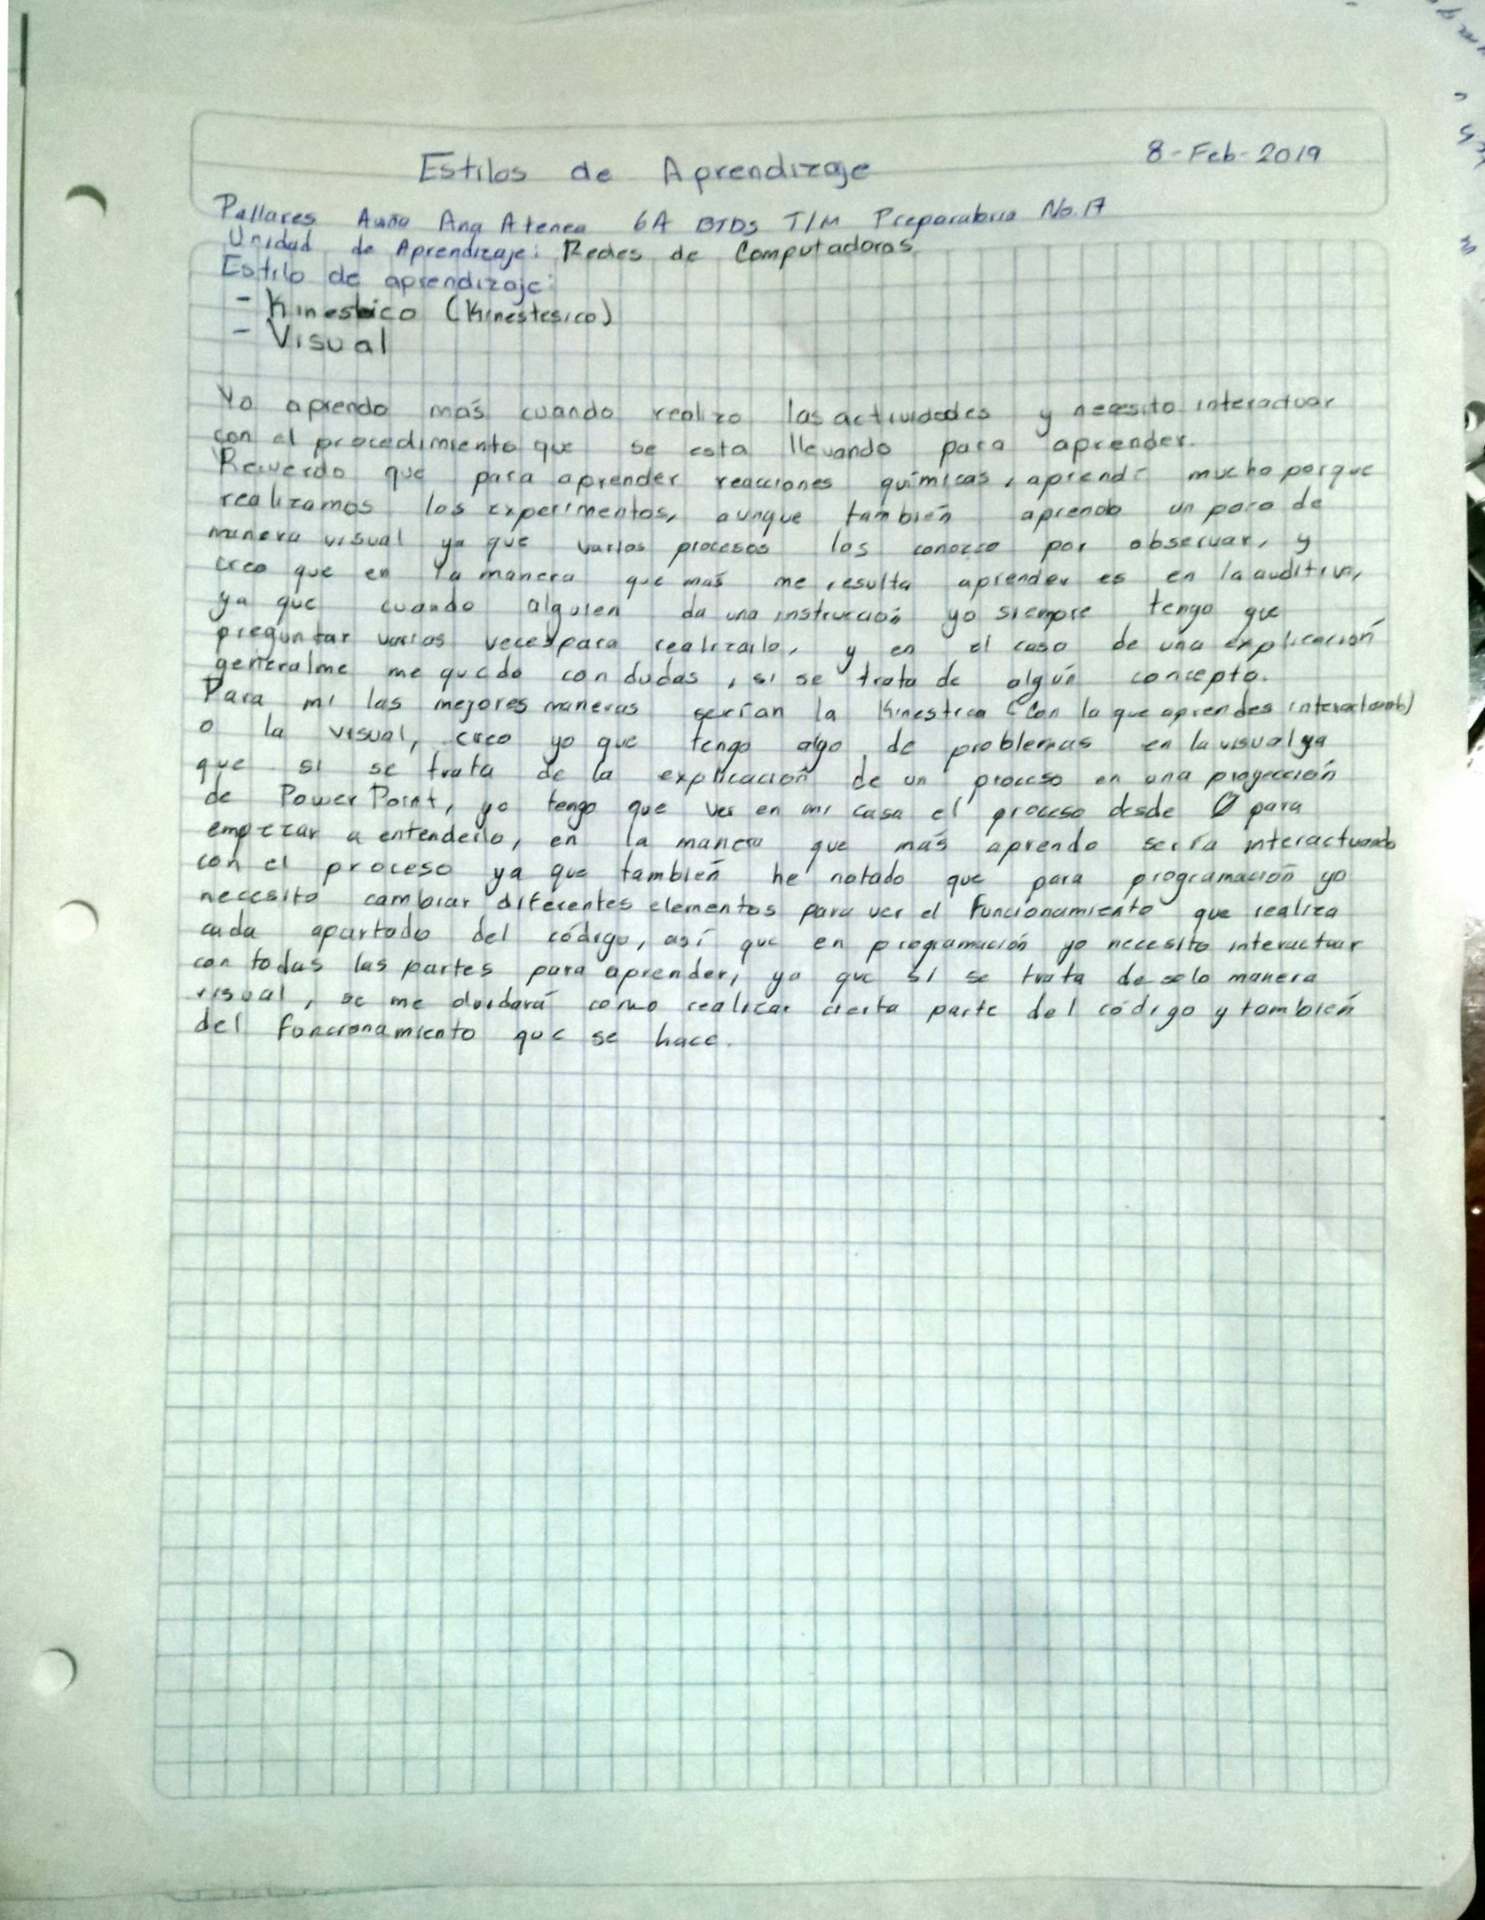 8-Feb-2019
Estilos de Aprendizaje
Pallares Ana Atenea 6A BTDS T/M Preparatoria No. 17
Unidad de Aprendizaje: Redes de Computadoras
Estilo de aprendizaje:
- Kinestico (Kinestesico)
- Visual
Yo aprendo más cuando realizo las actividades y necesito interactuar
con el procedimiento que se esta llevando para aprender.
Recuerdo que para aprender reacciones químicas, aprendí mucho porque
realizamos los experimentos, aunque también aprendo un poco de
manera visual ya que varios procesos los conozco por observar, y
creo que en la manera que más me resulta aprender es en la auditiva,
ya que cuando alguien da una instrucción yo siempre tengo que
preguntar varias veces para realizarlo, y en el caso de una explicación
generalme me quedo con dudas, si se trata de algún concepto.
Para mi las mejores maneras serían la Kinestica (con la que aprendes interactuando)
o la visual, creo yo que tengo algo de problemas en la visual ya
que si se trata de la explicación de un proceso en una proyección
de Power Point, yo tengo que ver en mi casa el proceso desde 0 para
empezar a entenderlo, en la manera que más aprendo sería interactuando
con el proceso ya que también he notado que para programación yo
necesito cambiar diferentes elementos para ver el funcionamiento que realiza
cada apartado del código, así que en programación yo necesito interactuar
con todas las partes para aprender, ya que si se trata de solo manera
visual, se me olvidará como realizar cierta parte del código y también
del funcionamiento que se hace.